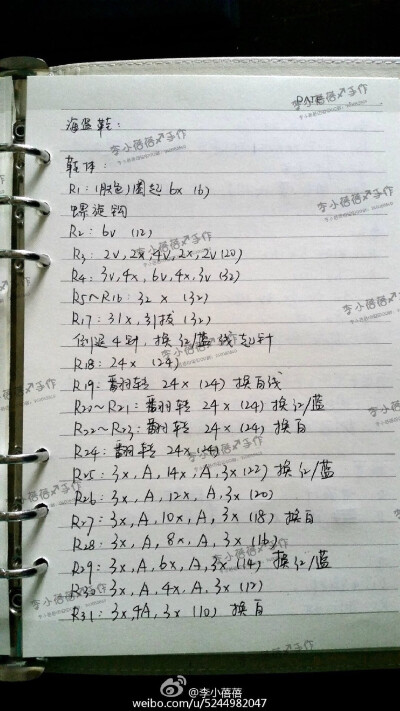 DATE
海盗鞋:
鞋体:
R1: (肤色)圈起 6x (6)
螺旋钩
R2: 6v (12)
R3: 2v, 2x, 4v, 2x, 2v (20)
R4: 3v, 4x, 6v, 4x, 3v (32)
R5~R16: 32 x (32)
R17: 31x, 引拔 (32)
倒退4针, 换红/蓝线起针
R18: 24x (24)
R19: 翻转 24x (24) 换白线
R20~R21: 翻转 24x (24) 换红/蓝
R22~R23: 翻转 24x (24) 换白
R24: 翻转 24x (24)
R25: 3x, A, 14x, A, 3x (22) 换红/蓝
R26: 3x, A, 12x, A, 3x (20)
R27: 3x, A, 10x, A, 3x (18) 换白
R28: 3x, A, 8x, A, 3x (16)
R29: 3x, A, 6x, A, 3x (14) 换红/蓝
R30: 3x, A, 4x, A, 3x (12)
R31: 3x, 4A, 3x (10) 换白
李小蓓蓓手作
@李小蓓蓓
weibo.com/u/5244982047